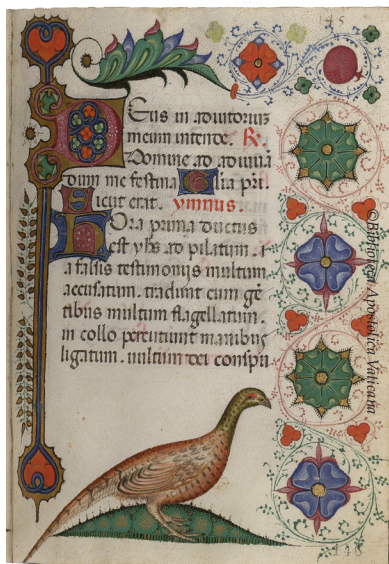 45
Deus in adiutorium
meum intende. R.
Domine ad adiuua
dum me festina Glia pri.
Sicut erat. ymnus.
Hora prima ductus
est yhs ad pilatum. i
a falsis testimonijs multum
accusatum. tradunt eum gē
tibus multum flagellatum.
in collo percutiunt manibus
ligatum. uultum dei conspu
©Biblioteca Apostolica Vaticana